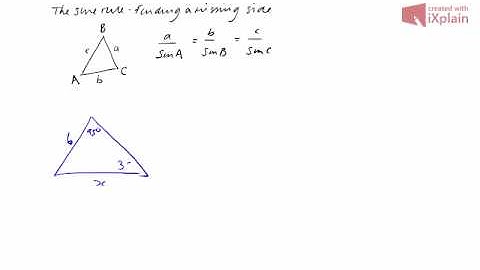 The sine rule - finding a missing side
created with
iXplain
B
c a
A b C
a/sinA = b/sinB = c/sinC
6
95°
3
x